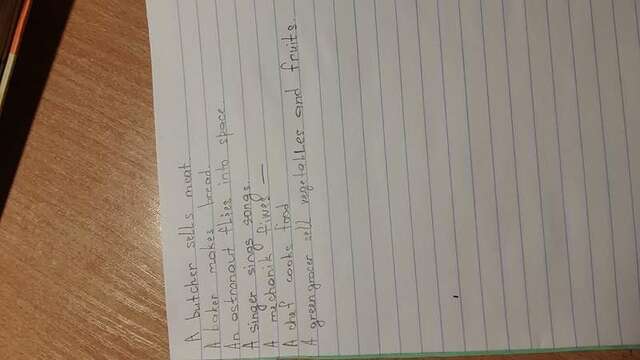 A butcher sells meat.
A baker makes bread.
An astronaut flies into space.
A singer sings songs.
A mechanik fixes —
A chef cooks food
A greengrocer sell vegetables and fruits.